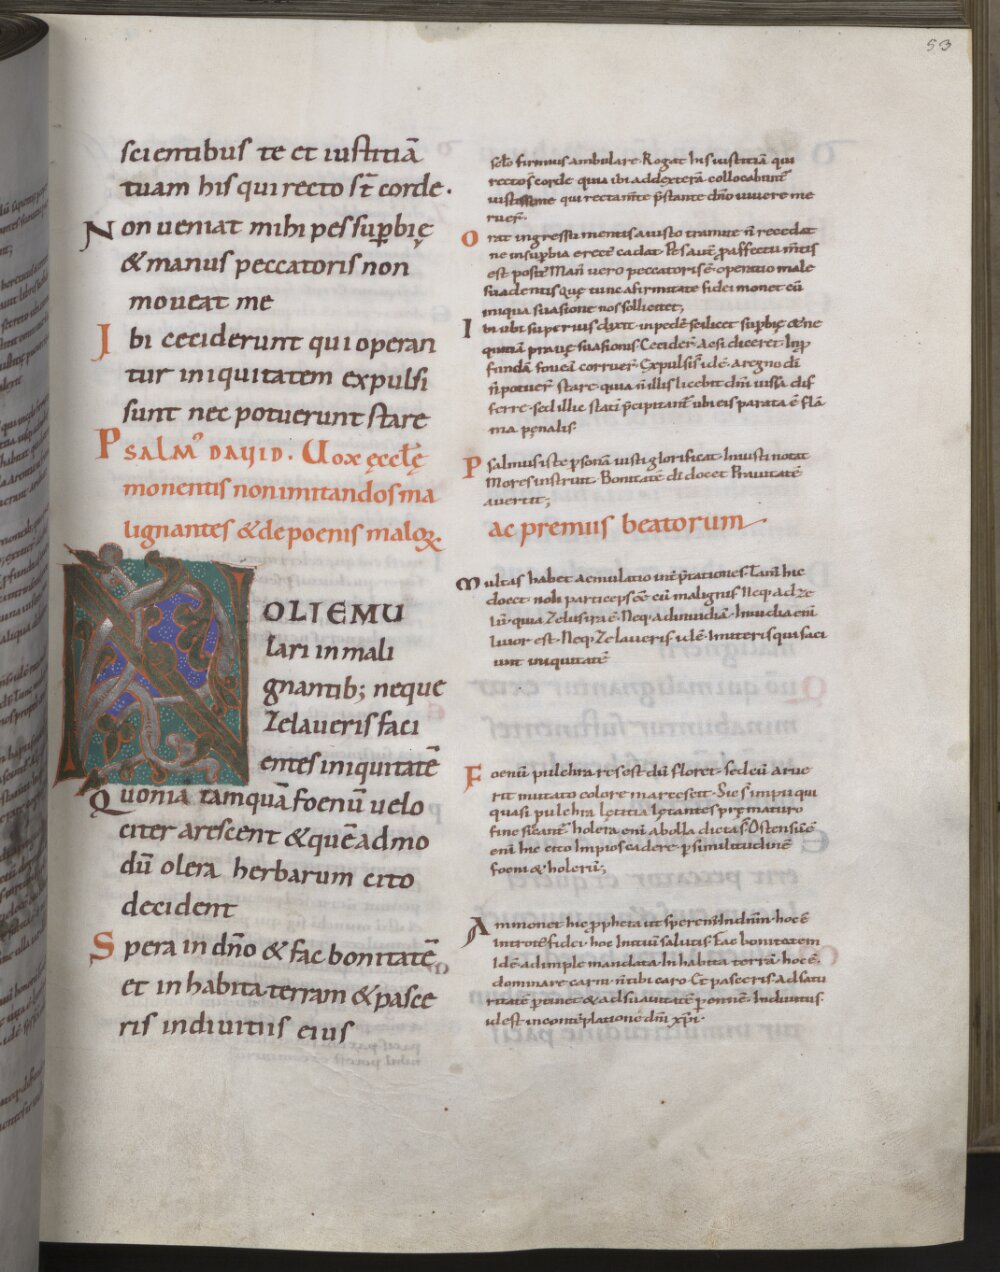 53
scientibus te et iustitiā
tuam his qui recto st̄ corde.
Non ueniat mihi pes sup̱bię
& manus peccatoris non
moueat me
Ibi ceciderunt qui operan
tur iniquitatem expulsi
sunt nec potuerunt stare
PSALMꝰ DAVID. Uox ęcctę
monentis non imitandos ma
lignantes & de poenis maloꝝ.
NOLI EMU
lari in mali
gnantib; neque
Zelaueris faci
entes iniquitatē
Quoniā tamquā foenū uelo
citer arescent & quēadmo
dū olera herbarum cito
decident
Spera in dn̄o & fac bonitatē
et inhabita terram & pasce
ris in diuitiis eius
firmius ambulare. Rogat his iustitiā qui
recto s̄ corde quia ibi ad dexterā collocabunt̄
qui rectam̄te p̄stante dn̄o uiuere me
ruer̄.
Orat ingressū mentis a iusto tramite n̄ recedat
ne insup̱bia erecē cadat. Pes
est Man̄ uero peccatoris ē operatio male
suadentis quę tunc a firmitate fidei monet cū
iniqua suasione nos sollicitet;
Ibi ubi superius dixit in pede scilicet sup̱bię & ne
prauę suasionis Cecider̄ Ac si diceret. In p̱
fundā foueā corruer̄. Expulsi s̄ idē. a regno dī
n̄ potuer̄ stare. quia n̄ illis licebit dn̄i iussa dif
ferre. sed illic statī p̄cipitant̄ ubi eis parata ē flā
ma pęnalis.
Psalmus iste p̱sonā iusti glorificat. Iniusti notat
Mores instruit. Bonitatē dī docet Prauitatē
auertit;
ac premiis beatorum
Multas habet aemulatio int̄p̄tationes. Tam̄ hic
docet. noli particeps ēē cū malignis Neq. ad ze
lū. quia Zelus ira ē. Neq. ad inuidiā. Inuidia eni
liuor est. Neq. Zelaueris idē. Imiteris qui faci
unt iniquitatē
Foenū pulchra res est dū floret. sed cū arue
rit mutato colore marcescit. Sic simpii qui
quasi pulchra lętitia lętantes pręmaturo
fine siccant̄ holera eni abolla dicta s̄ Ostensū ē
eni hic cito impios cadere. p̱ similitudinē
foeni & holerū;
Ammonet hic p̱pheta ut sperem̄. In dn̄m. hoc ē
introitꝰ fidei. hoc Initiū salutis. Fac bonitatem
Idē. adimple mandata. Inhabita terrā. hoc ē.
dominare carni. n̄ tibi caro. Et pasceris. Ad satu
ritatē p̱tinet & ad suauitatē p̱ennē. In diuitiis.
id est in contēplatione dn̄i xp̄i.